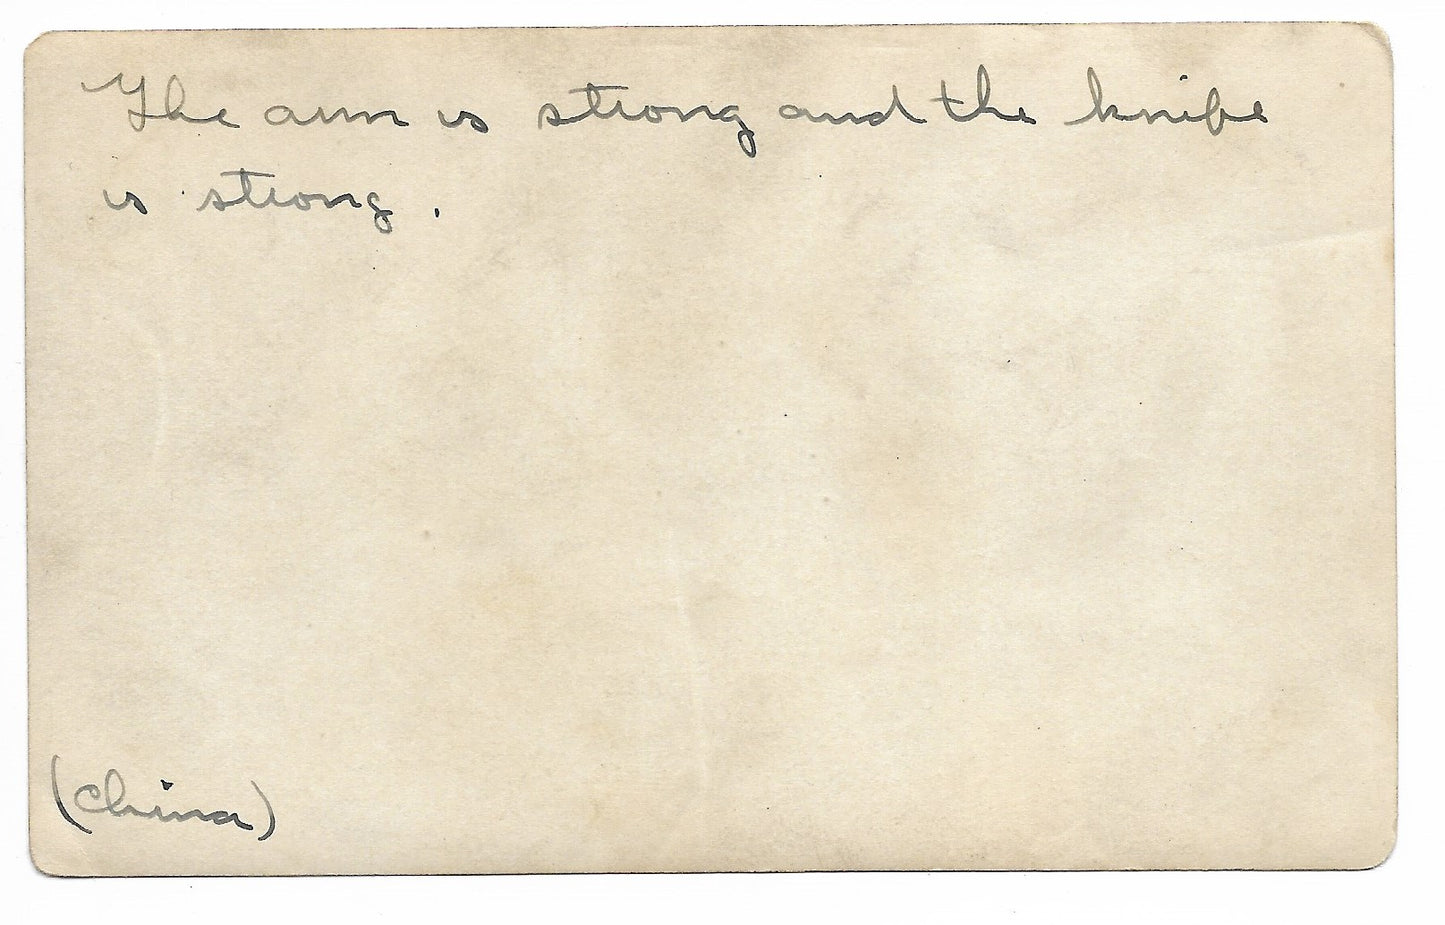 The arm is strong and the knife
is strong.
(China)